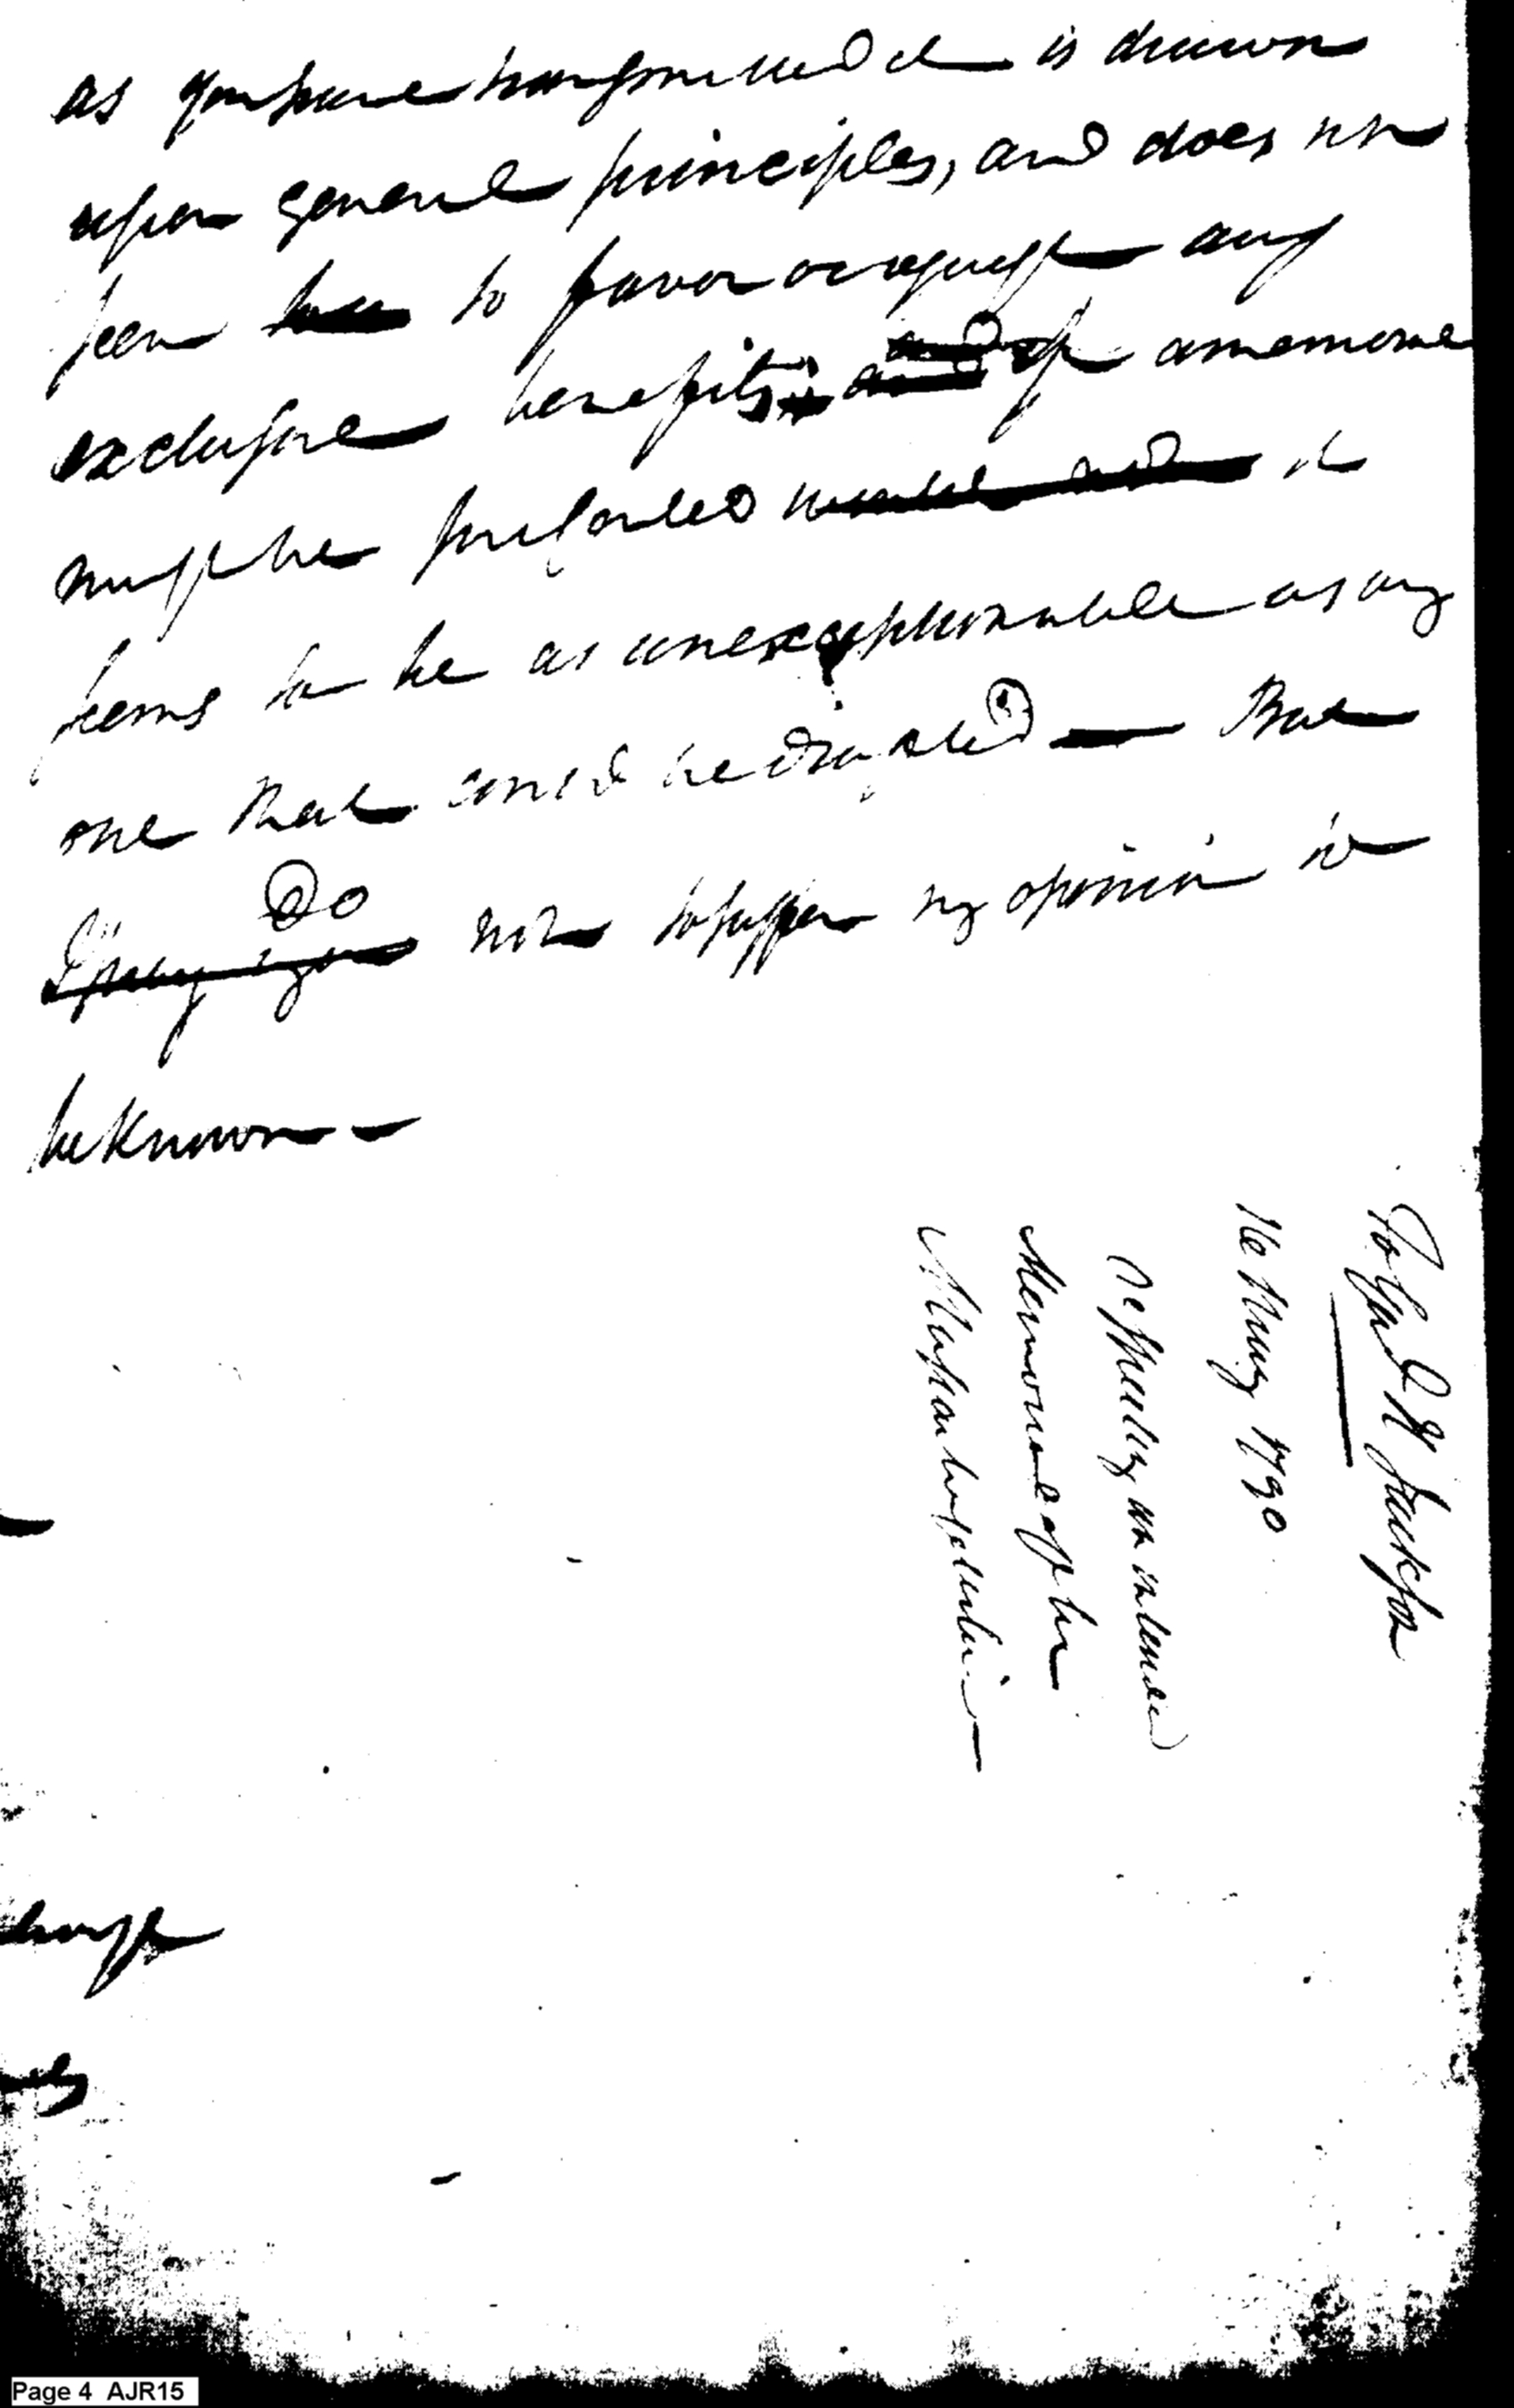 as you have transmitted it is drawn
upon general principles, and does not
seem to favor or request any
exclusive benefits; If a memorial
must be presented it
seems to be as unexceptionable as any
one that could be drafted — But
Do
I pray you not to suffer my opinion to
be known —
To Hen
16 May 1790
Respecting an intended
Memorial of the
Massachusetts line —
Page 4 AJR15